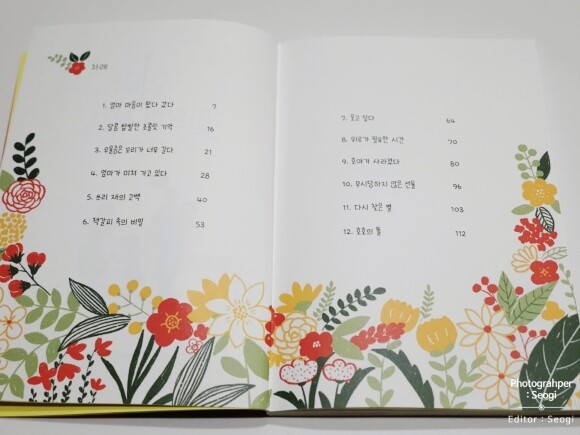 차례
1. 엄마 마음이 왔다 갔다 7
2. 달콤 쌉쌀한 초콜릿 기억 16
3. 꼬리가 너무 길다 21
4. 엄마가 미쳐 가고 있다 28
5. 고백 40
6. 책갈피 속의 비밀 53
7. 웃고 싶다 64
8. 위로가 필요한 시간 70
9. 사라졌다 80
10. 무시당하지 않은 선물 96
11. 다시 찾은 별 103
12. 112
Photograhper
: Seogi
Editor : Seogi